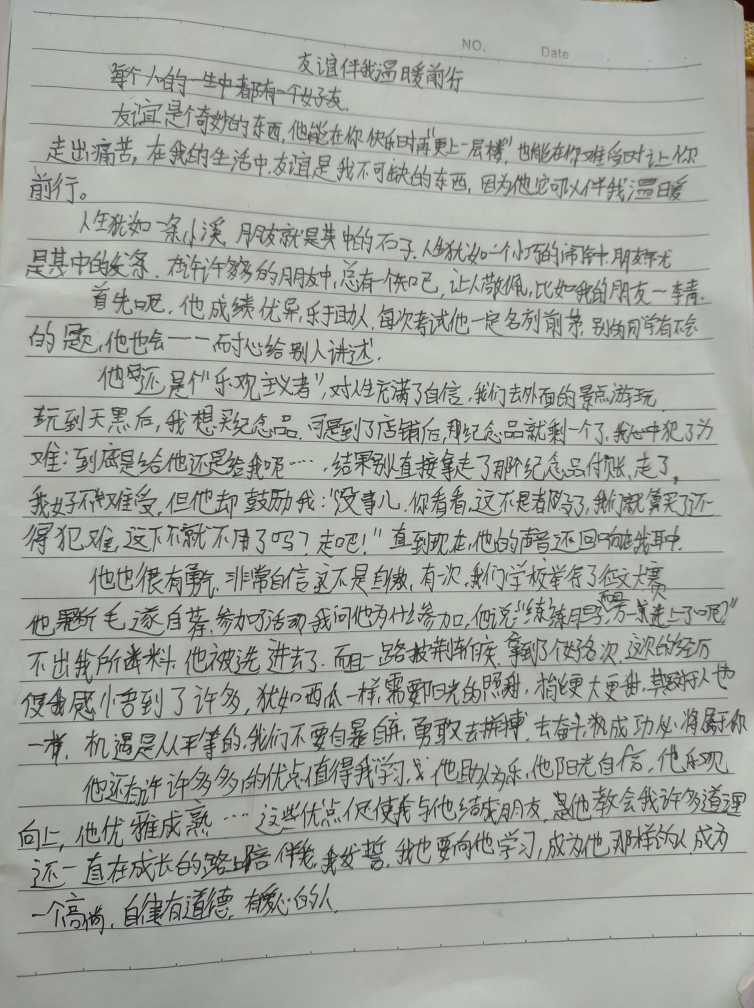 NO.
Date
友谊伴我温暖前行
每个人的一生中都有一个好友.
友谊是个奇妙的东西,他能在你快乐时再"更上一层楼",也能在你难受时让你
走出痛苦,在我的生活中,友谊是我不可缺的东西,因为他它可以伴我温暖
前行。
人生犹如一条小溪,朋友就是其中的石子.人生犹如一个小巧的闹钟,朋友
是其中的发条.在许许多多的朋友中,总有一个知己,让人敬佩,比如我的朋友一李青.
首先呢,他成绩优异,乐于助人,每次考试他一定名列前茅,别的同学有不会
的题,他也会一一耐心给别人讲述.
他还是个"乐观主义者",对人生充满了自信,我们去外面的景点游玩
玩到天黑后,我想买纪念品,可是到了店铺后,那纪念品就剩一个了,我心中犯了为
难:到底是给他还是给我呢……,结果别人直接拿走了那个纪念品付账,走了,
我好不难受,但他却鼓励我:"没事儿,你看看,这不是都没了,我们就算买了还
得犯难,这下不就不用了吗?走吧!"直到现在,他的声音还回响在我耳中.
他也很有勇气,非常自信,这不是自傲,有一次,我们学校举行了征文大赛
他果断毛遂自荐,参加了活动,我问他为什么参加,他说:"练练用吗,万一选上了呢?"
不出我所料,他被选进去了.而且一路披荆斩棘,拿到了个好名次,这次的经历
使我感悟到了许多,犹如西瓜一样,需要阳光的照射,才能更大更甜,其实对于人也
一样,机遇是人平等的,我们不要自暴自弃,勇敢去拼搏,去奋斗,成功必将属于你
他还有许许多多的优点值得我学习,他助人为乐,他阳光自信,他乐观
向上,他优雅成熟……这些优点促使我与他结成朋友,是他教会我许多道理
还一直在成长的路上陪伴我,我发誓,我也要向他学习,成为他那样的人,成为
一个高尚,自律有道德,有爱心的人.